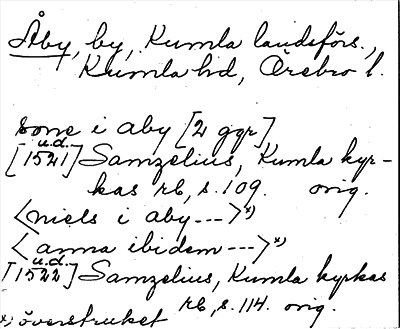 Åby, by, Kumla landsförs.,
Kumla hd, Örebro l.
bone i aby [2 ggr]
u.d.
[1521] Samzelius, Kumla kyr-
kas rb, s. 109. orig.
<niels i aby--->x)
<anna ibidem--->x)
u.d.
[1522] Samzelius, Kumla kyrkas
rb, s. 114. orig.
x) överstruket